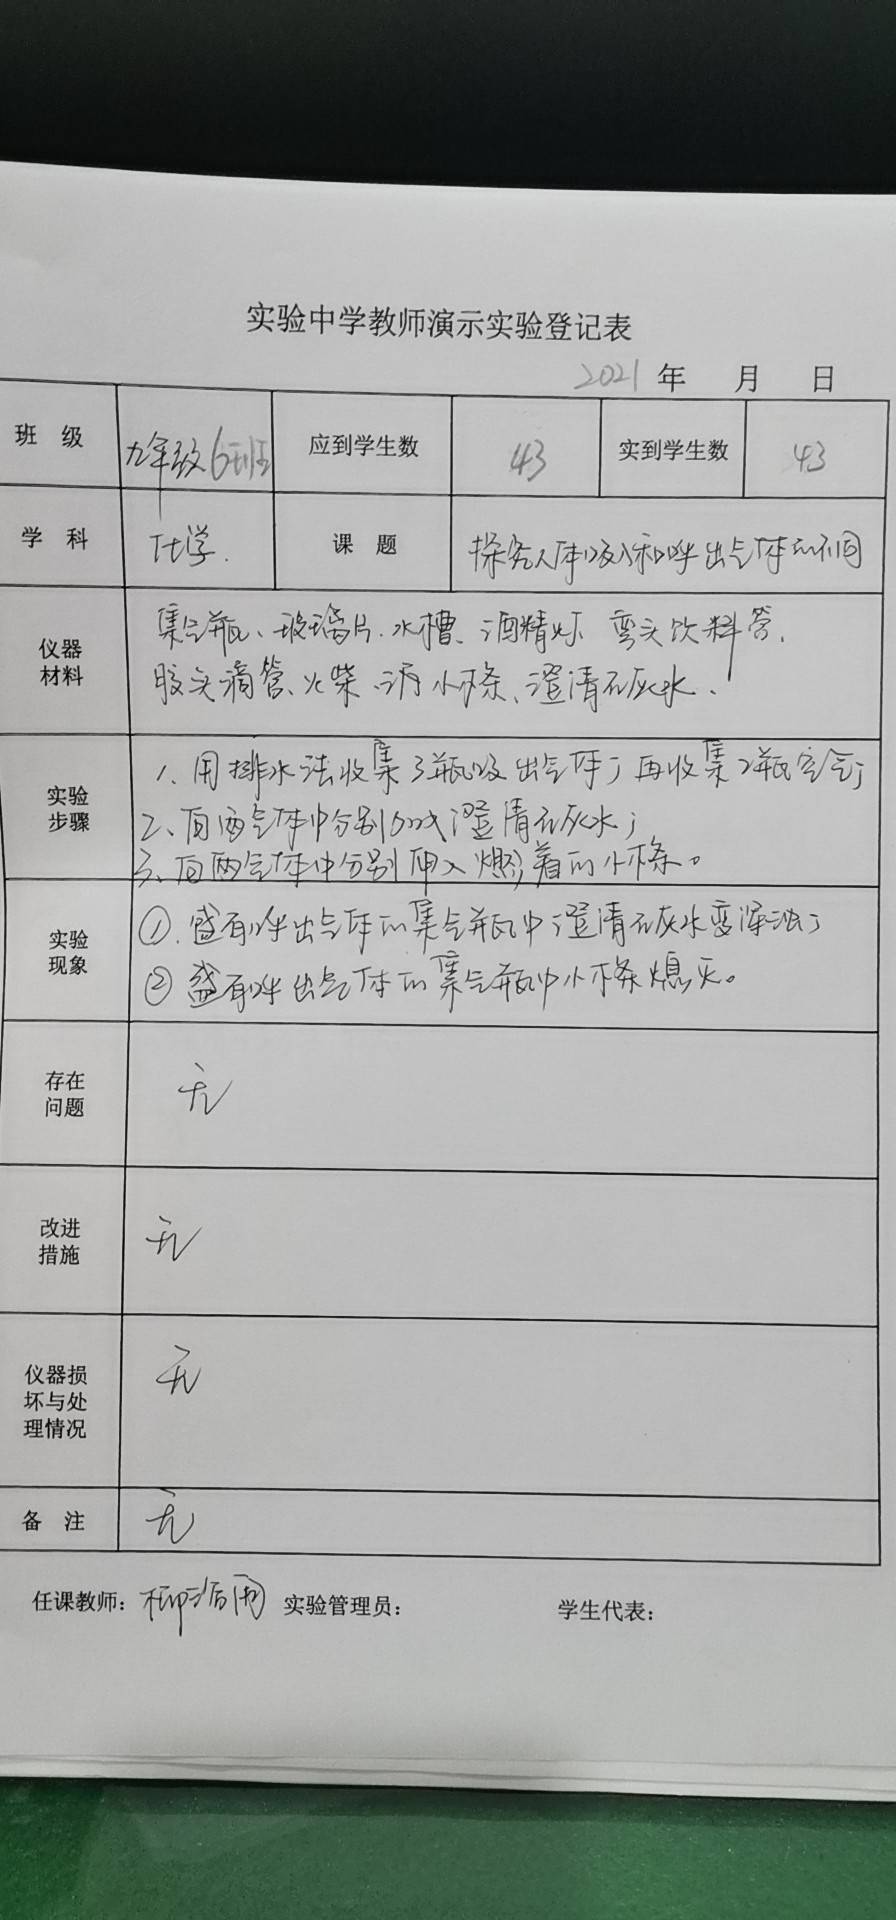 实验中学教师演示实验登记表
2021 年 月 日
班 级 九年级6班 应到学生数 43 实到学生数 43
学 科 化学. 课 题 探究人体吸入和呼出气体的不同
仪器材料 集气瓶、玻璃片、水槽、酒精灯 弯头饮料管、
胶头滴管、火柴、 小木条、澄清石灰水、
实验步骤 1、用排水法收集 瓶 出气体;再收集2瓶空气;
2、向两气体中分别 澄清石灰水;
3、向两气体中分别伸入燃着的小木条。
实验现象 ①.盛有呼出气体的集气瓶中澄清石灰水变浑浊;
② 盛有呼出气体的集气瓶中小木条熄灭。
存在问题 无
改进措施 无
仪器损坏与处理情况 无
备 注 无
任课教师: 柳 实验管理员: 学生代表: